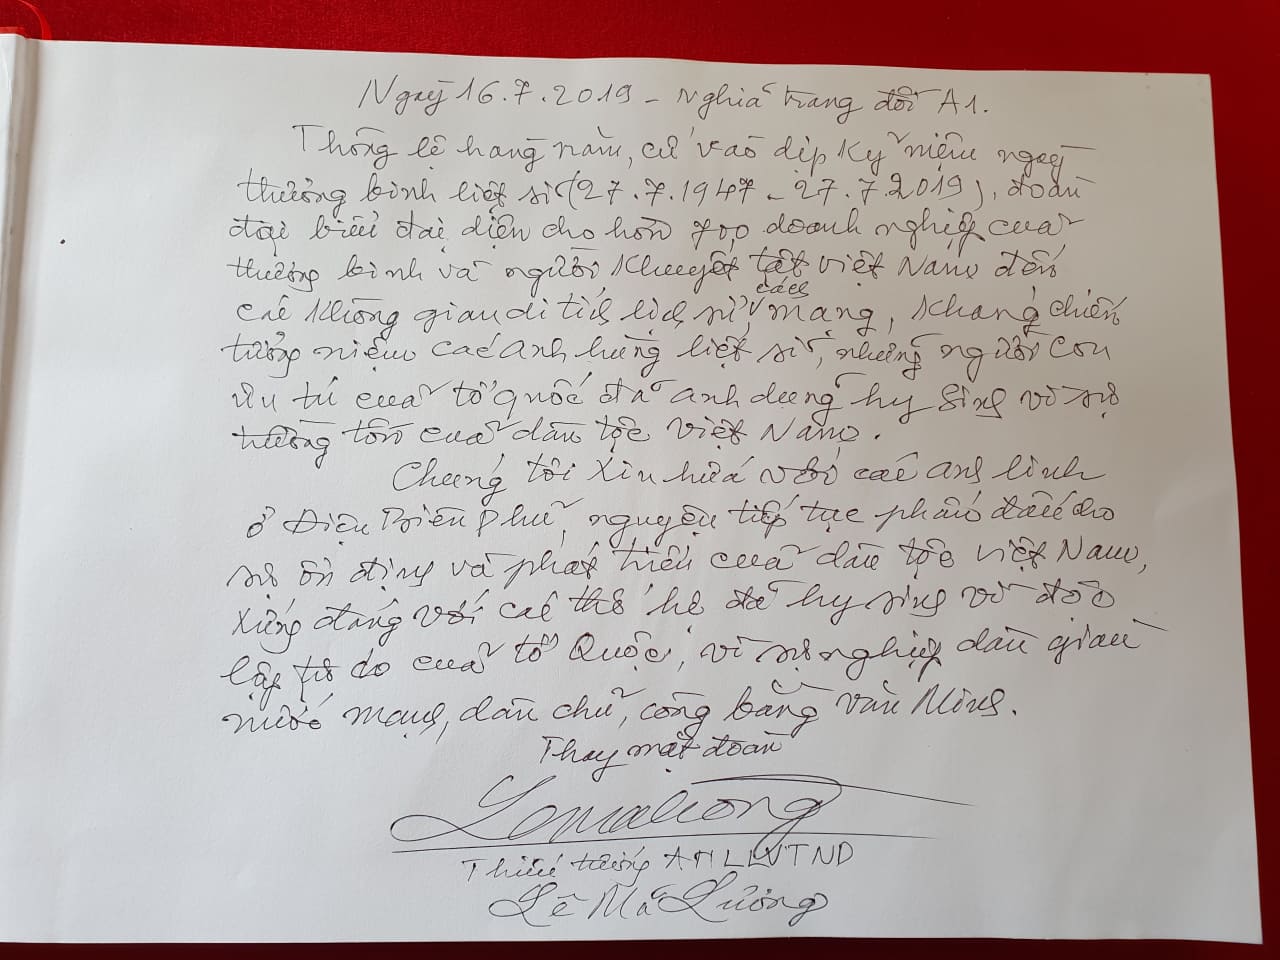 Ngày 16.7.2019 - Nghĩa trang đồi A1.
Thông lệ hàng năm, cứ vào dịp Kỷ niệm ngày
thương binh liệt sĩ (27.7.1947 - 27.7.2019), đoàn
đại biểu đại diện cho hơn 700 doanh nghiệp của
thương binh và người Khuyết tật Việt Nam đến
các không gian di tích lịch sử cách mạng, Kháng chiến
tưởng niệm các anh hùng liệt sĩ, những người con
ưu tú của tổ quốc đã anh dũng hy sinh vì sự
trường tồn của dân tộc Việt Nam.
Chúng tôi xin hứa với các anh linh
ở Điện Biên Phủ, nguyện tiếp tục phấn đấu cho
sự ổn định và phát triển của dân tộc Việt Nam,
Xứng đáng với các thế hệ đã hy sinh vì độc
lập tự do của tổ Quốc, vì sự nghiệp dân giàu
nước mạnh, dân chủ, công bằng văn Minh.
Thay mặt đoàn
Lemaluong
Thiếu tướng AHLLVTND
Lê Mã Lương